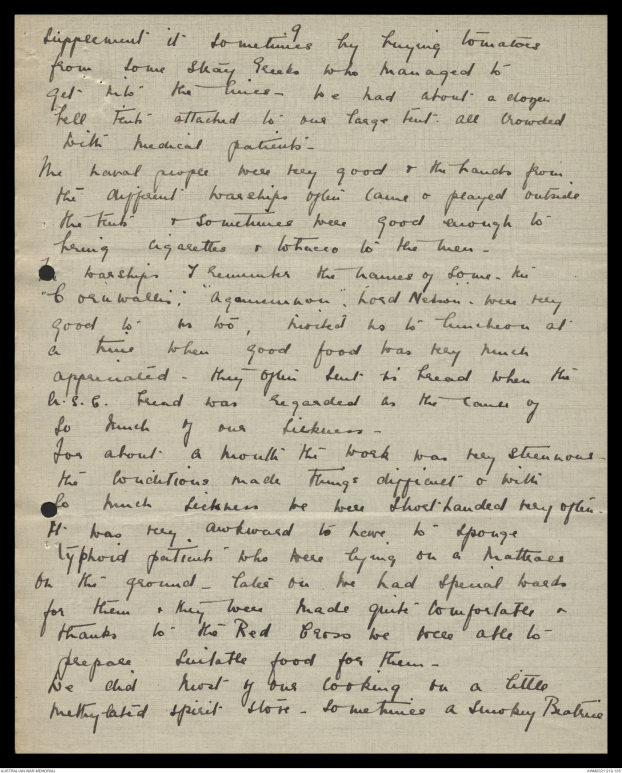 9
supplement it sometimes by buying tomatoes
from some stray Greeks who managed to
get into the lines - We had about a dozen
bell tents attached to our large tent. all crowded
with medical patients -
The naval people were very good & the bands from
the different warships often came & played outside
the tents & sometimes were good enough to
bring cigarettes & tobacco to the men -
warships I remember the names of some - the
"Cornwallis", "Agamemnon", Lord Nelson - were very
good to us too, invited us to luncheon at
a time when good food was very much
appreciated - they often sent us bread when the
A.S.C. bread was regarded as the cause of
so much of our sickness -
For about a month the work was very strenuous -
the conditions made things difficult & with
so much sickness we were short handed very often -
It was very awkward to have to sponge
typhoid patients who were lying on a mattress
on the ground - later on we had special wards
for them & they were made quite comfortable &
thanks to the Red Cross we were able to
prepare suitable food for them -
We did most of our cooking on a little
methylated spirit stove - sometimes a smokey Beatrice
AUSTRALIAN WAR MEMORIAL